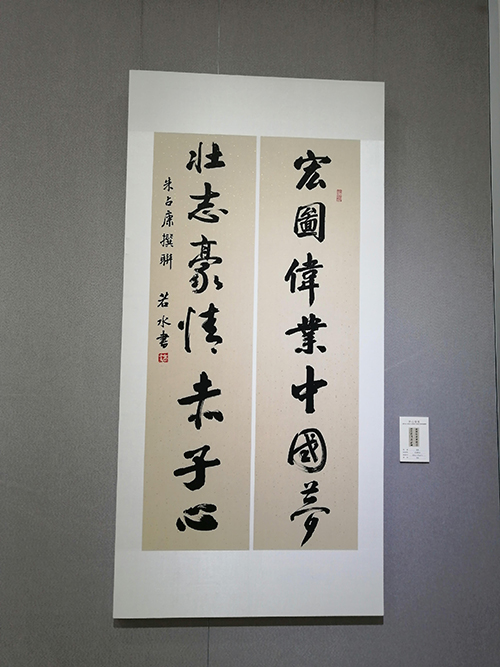 宏圖偉業中國夢
壯志豪情赤子心
朱占康撰聯
若水書